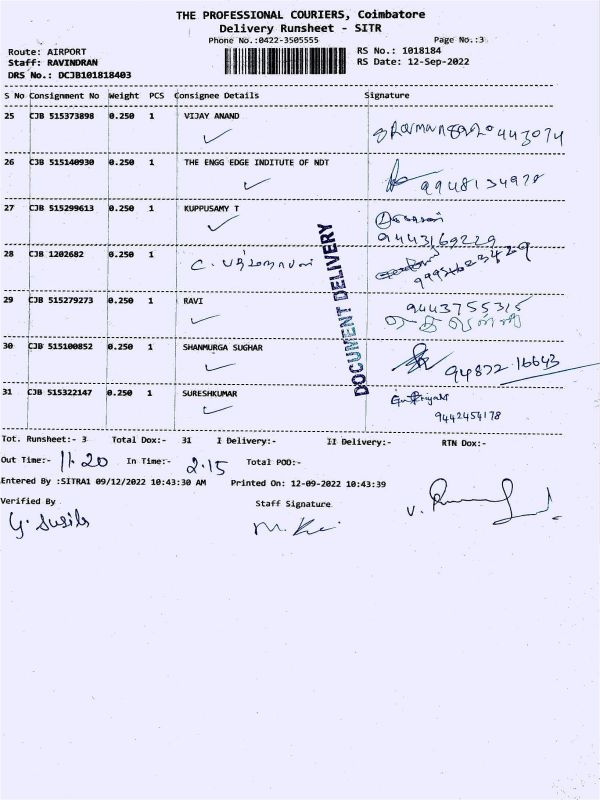 THE PROFESSIONAL COURIERS, Coimbatore
Delivery Runsheet - SITR
Phone No.:0422-3505555 Page No.:3
Route: AIRPORT RS No.: 1018184
Staff: RAVINDRAN RS Date: 12-Sep-2022
DRS No.: DCJB101818403
S No Consignment No Weight PCS Consignee Details Signature
25 CJB 515373898 0.250 1 VIJAY ANAND
26 CJB 515140930 0.250 1 THE ENGG EDGE INDITUTE OF NDT 9948134978
27 CJB 515299613 0.250 1 KUPPUSAMY T
9443169229
28 CJB 1202682 0.250 1 C.
29 CJB 515279273 0.250 1 RAVI 9443755315
30 CJB 515100852 0.250 1 SHANMURGA SUGHAR 94872 16643
31 CJB 515322147 0.250 1 SURESHKUMAR
9442454178
DOCUMENT DELIVERY
Tot. Runsheet:- 3 Total Dox:- 31 I Delivery:- II Delivery:- RTN Dox:-
Out Time:- 11.20 In Time:- 2.15 Total POD:-
Entered By :SITRA1 09/12/2022 10:43:30 AM Printed On: 12-09-2022 10:43:39
Verified By Staff Signature